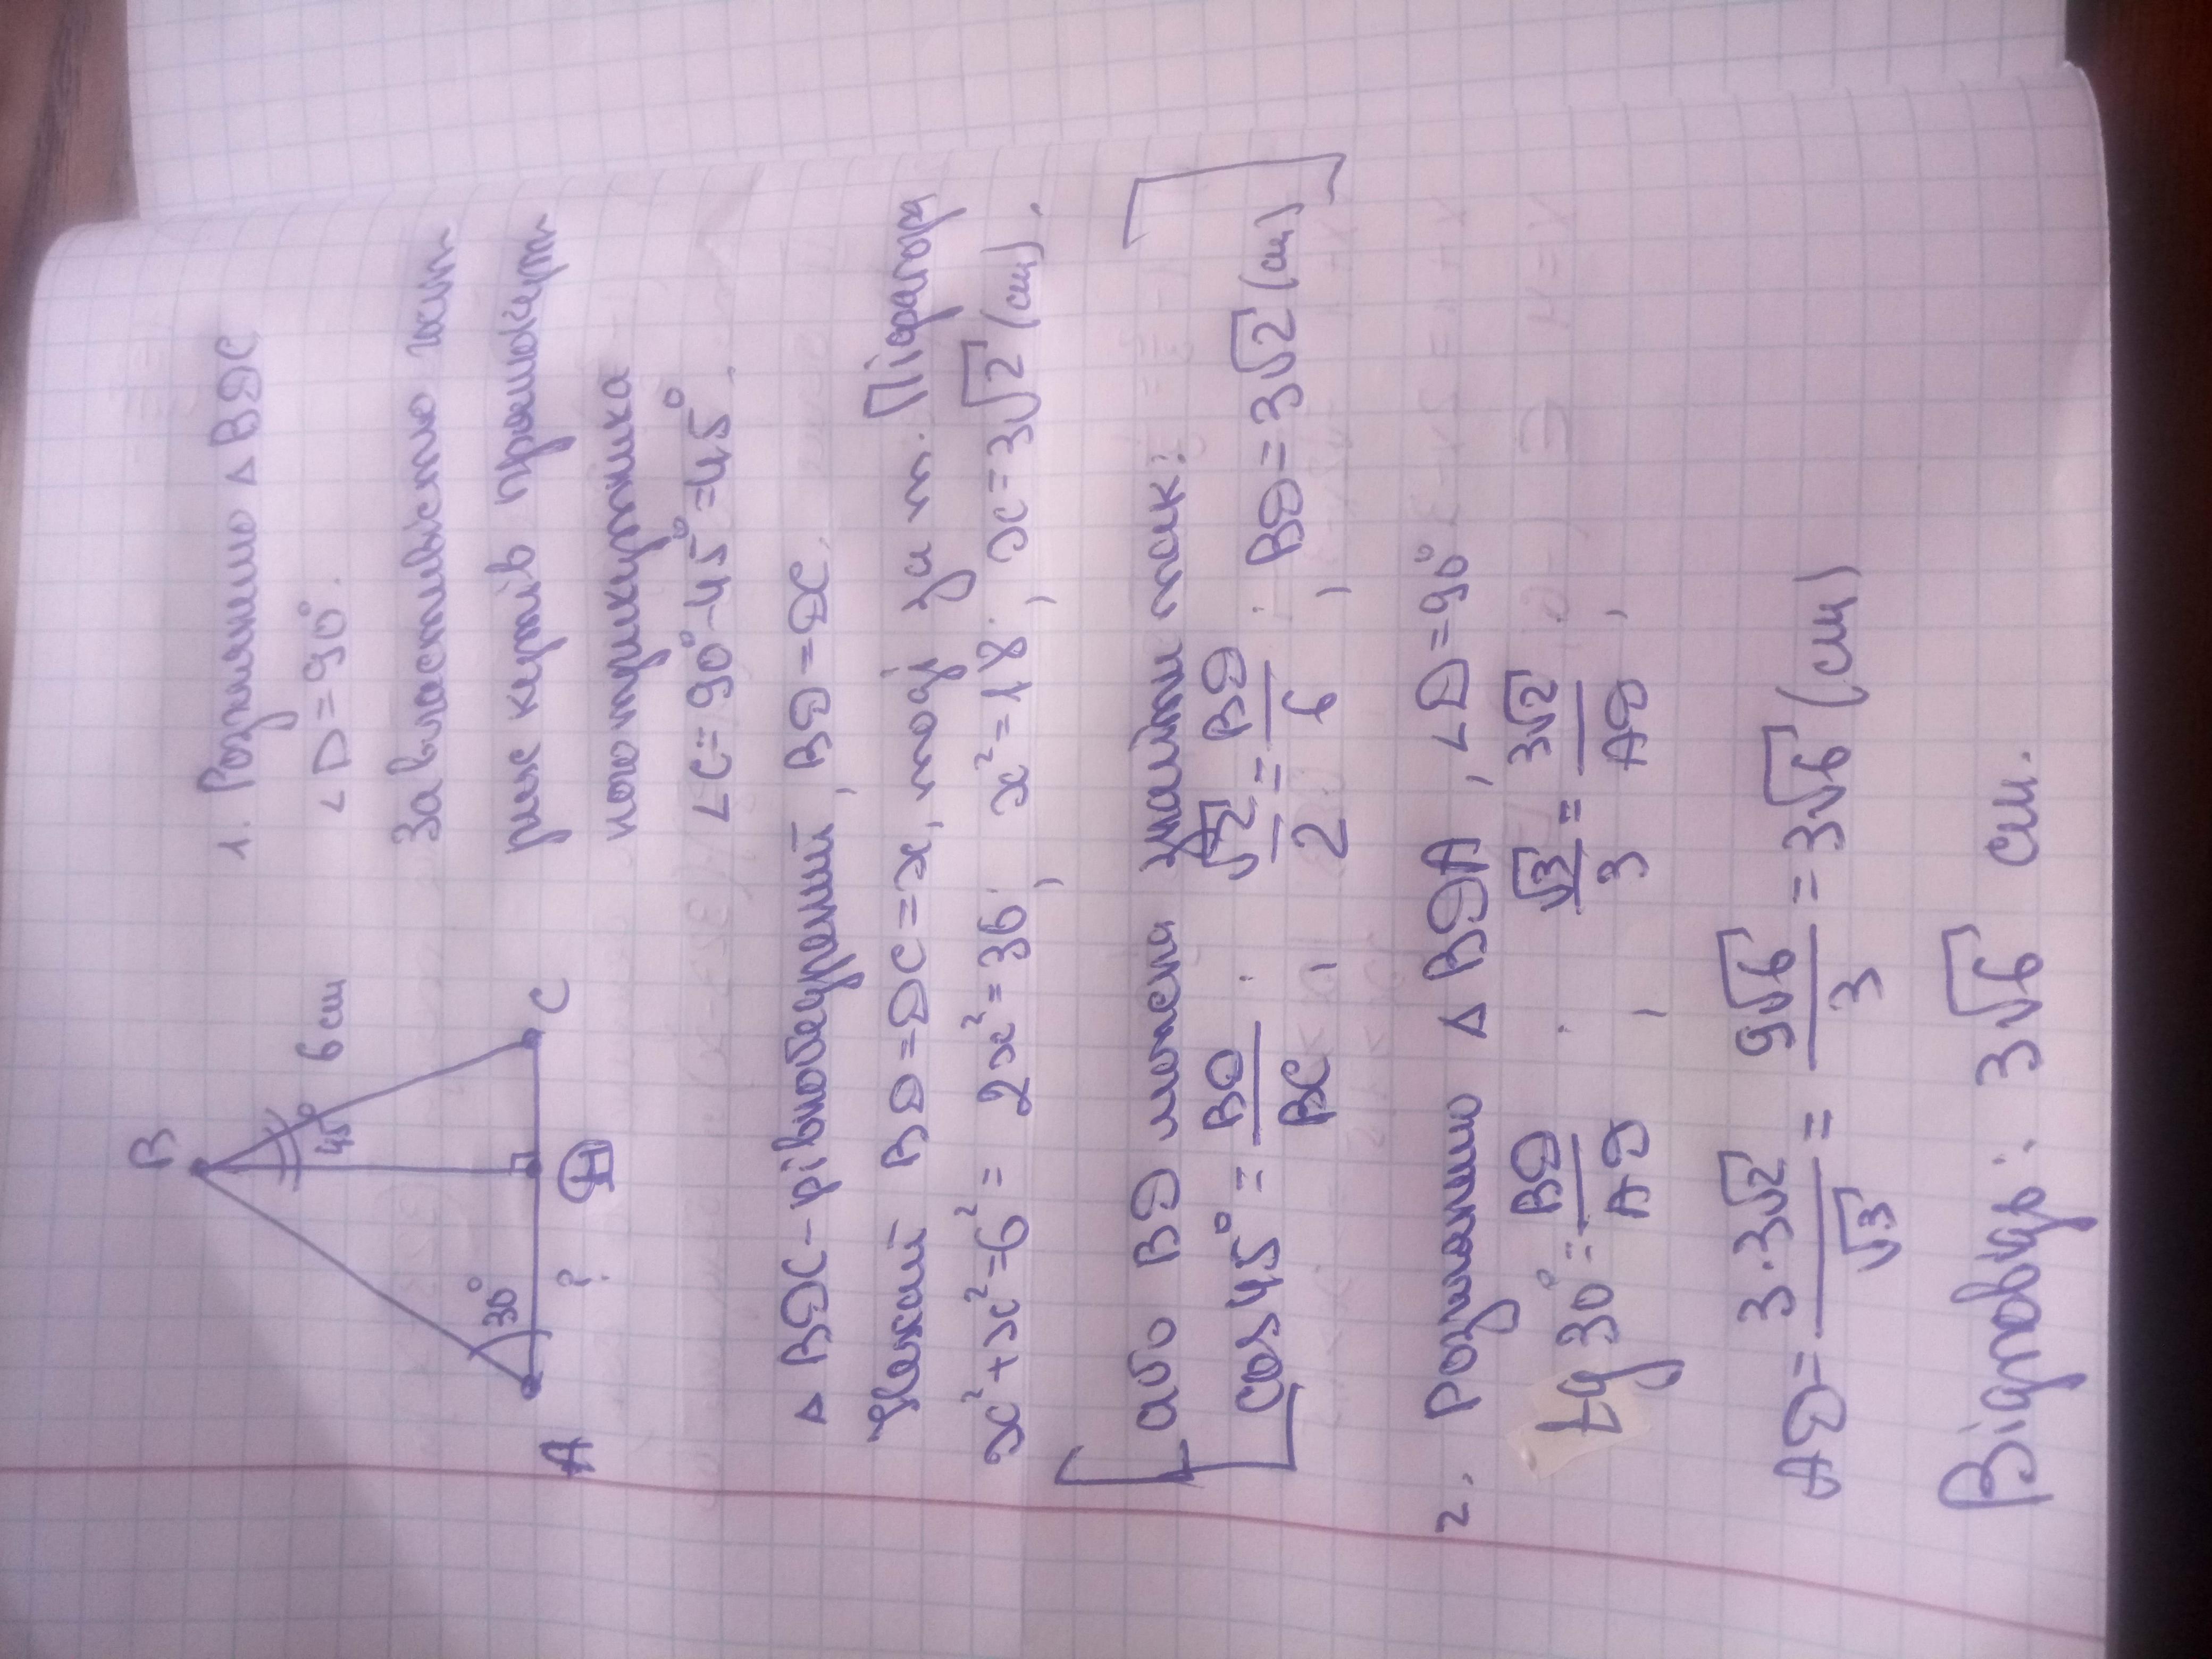 B
45°
6 см
30°
A
?
D
C
1. Розглянемо △ BDC
∠D = 90°.
За властивістю гост
рих кутів прямокут
ного трикутника
∠C = 90° - 45° = 45°.
△ BDC - рівнобедрений, BD = DC.
Нехай BD = DC = x, тоді за т. Піфагора
x² + x² = 6²; 2x² = 36; x² = 18; x = 3√2 (см).
[або BD можемо знайти так:
cos 45° = BD/BC; √2/2 = BD/6; BD = 3√2 (см)]
2. Розглянемо △ BDA, ∠D = 90°
tg 30° = BD/AD; √3/3 = 3√2/AD;
AD = 3·3√2/√3 = 9√6/3 = 3√6 (см)
Відповідь: 3√6 см.